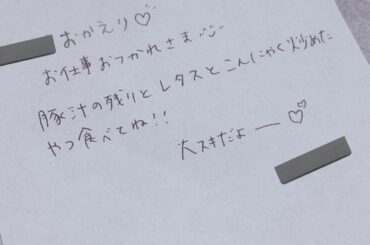 おかえり♡
お仕事おつかれさま
豚汁の残りとレタスとこんにゃく炒めた
やつ食べてね!!
大スキだよー♡